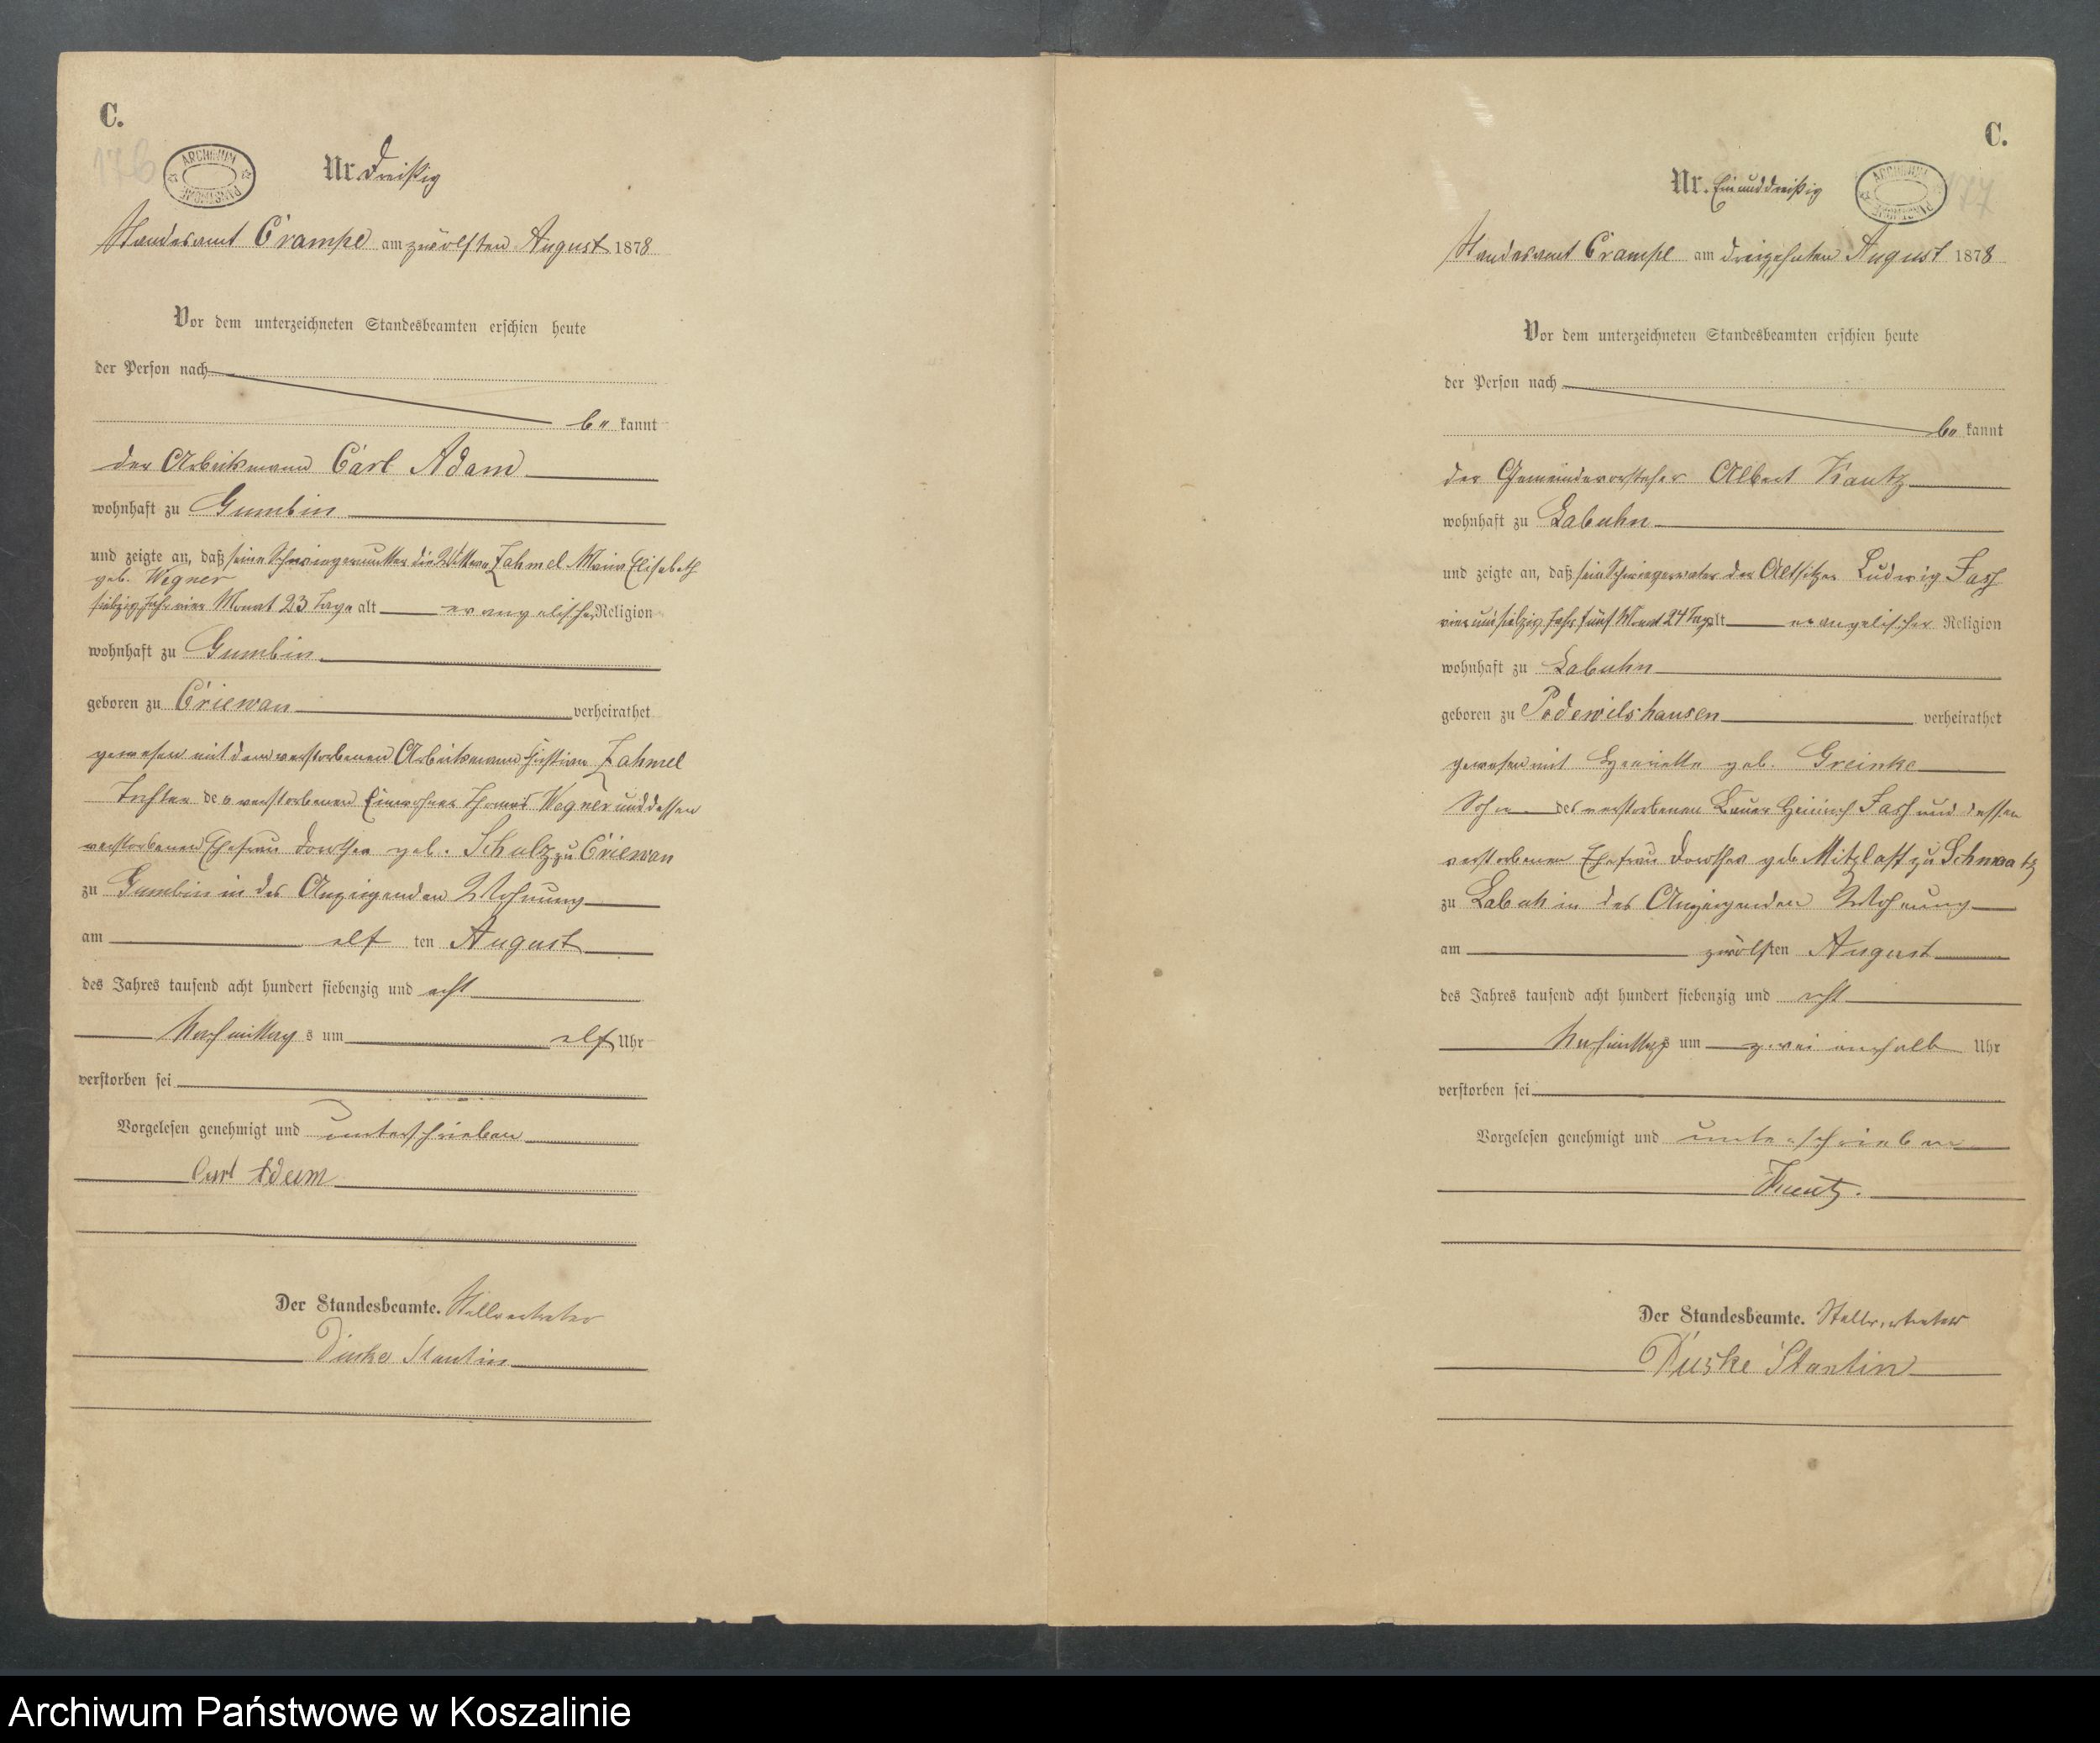 C.
176
ARCHIWUM PAŃSTWOWE
Nr. Dreißig
Standesamt Crampe am zwölften August 1878
Vor dem unterzeichneten Standesbeamten erschien heute
der Person nach
be kannt
der Arbeitsmann Carl Adam
wohnhaft zu Gumbin
und zeigte an, daß seine Schwiegermutter die Wittwe Zahmel Marie Elisabeth
geb. Wegner
siebzig Jahr vier Monat 23 Tage alt evangelischer Religion
wohnhaft zu Gumbin
geboren zu Criewan verheirathet
gewesen mit dem verstorbenen Arbeitsmann Christian Zahmel
Tochter des verstorbenen Einwohner Thomas Wegner und dessen
verstorbenen Ehefrau Dorothea geb. Schulz zu Criewan
zu Gumbin in des Anzeigenden Wohnung
am elf ten August
des Jahres tausend acht hundert siebenzig und acht
Nachmittag s um elf Uhr
verstorben sei
Vorgelesen genehmigt und unterschrieben
Carl Adam
Der Standesbeamte. Stellvertreter
Stantin
C.
177
ARCHIWUM PAŃSTWOWE
Nr. Einunddreißig
Standesamt Crampe am dreizehnten August 1878
Vor dem unterzeichneten Standesbeamten erschien heute
der Person nach
be kannt
der Gemeindevorsteher Albert Kautz
wohnhaft zu Labuhn
und zeigte an, daß sein Schwiegervater der Altsitzer Ludwig Fasch
vier und siebzig Jahr fünf Monat 24 Tage alt evangelischer Religion
wohnhaft zu Labuhn
geboren zu Podewilshausen verheirathet
gewesen mit Henriette geb. Greinke
Sohn des verstorbenen Bauer Heinrich Fasch und dessen
verstorbenen Ehefrau Dorothea geb. Mitzlaff zu Schwaatz
zu Labuh in des Anzeigenden Wohnung
am zwölften August
des Jahres tausend acht hundert siebenzig und acht
Nachmittags um zwei einhalb Uhr
verstorben sei
Vorgelesen genehmigt und unterschrieben
Kautz.
Der Standesbeamte. Stellvertreter
Stantin
Archiwum Państwowe w Koszalinie